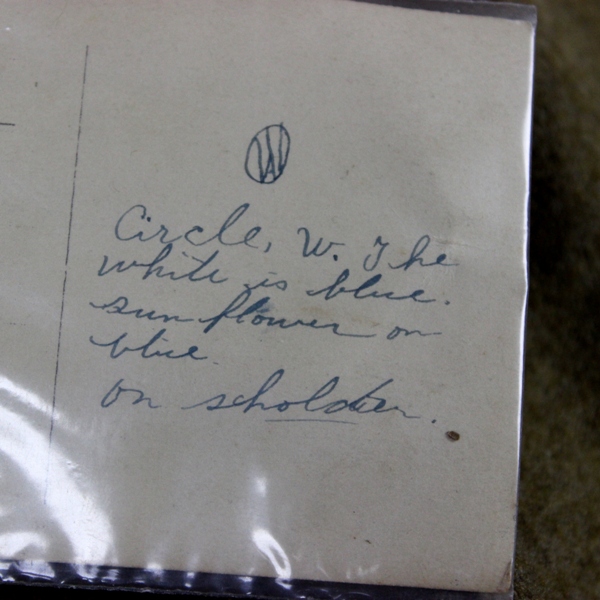 W
Circle, W. The
white is blue.
sun flower on
blue
on scholdier.